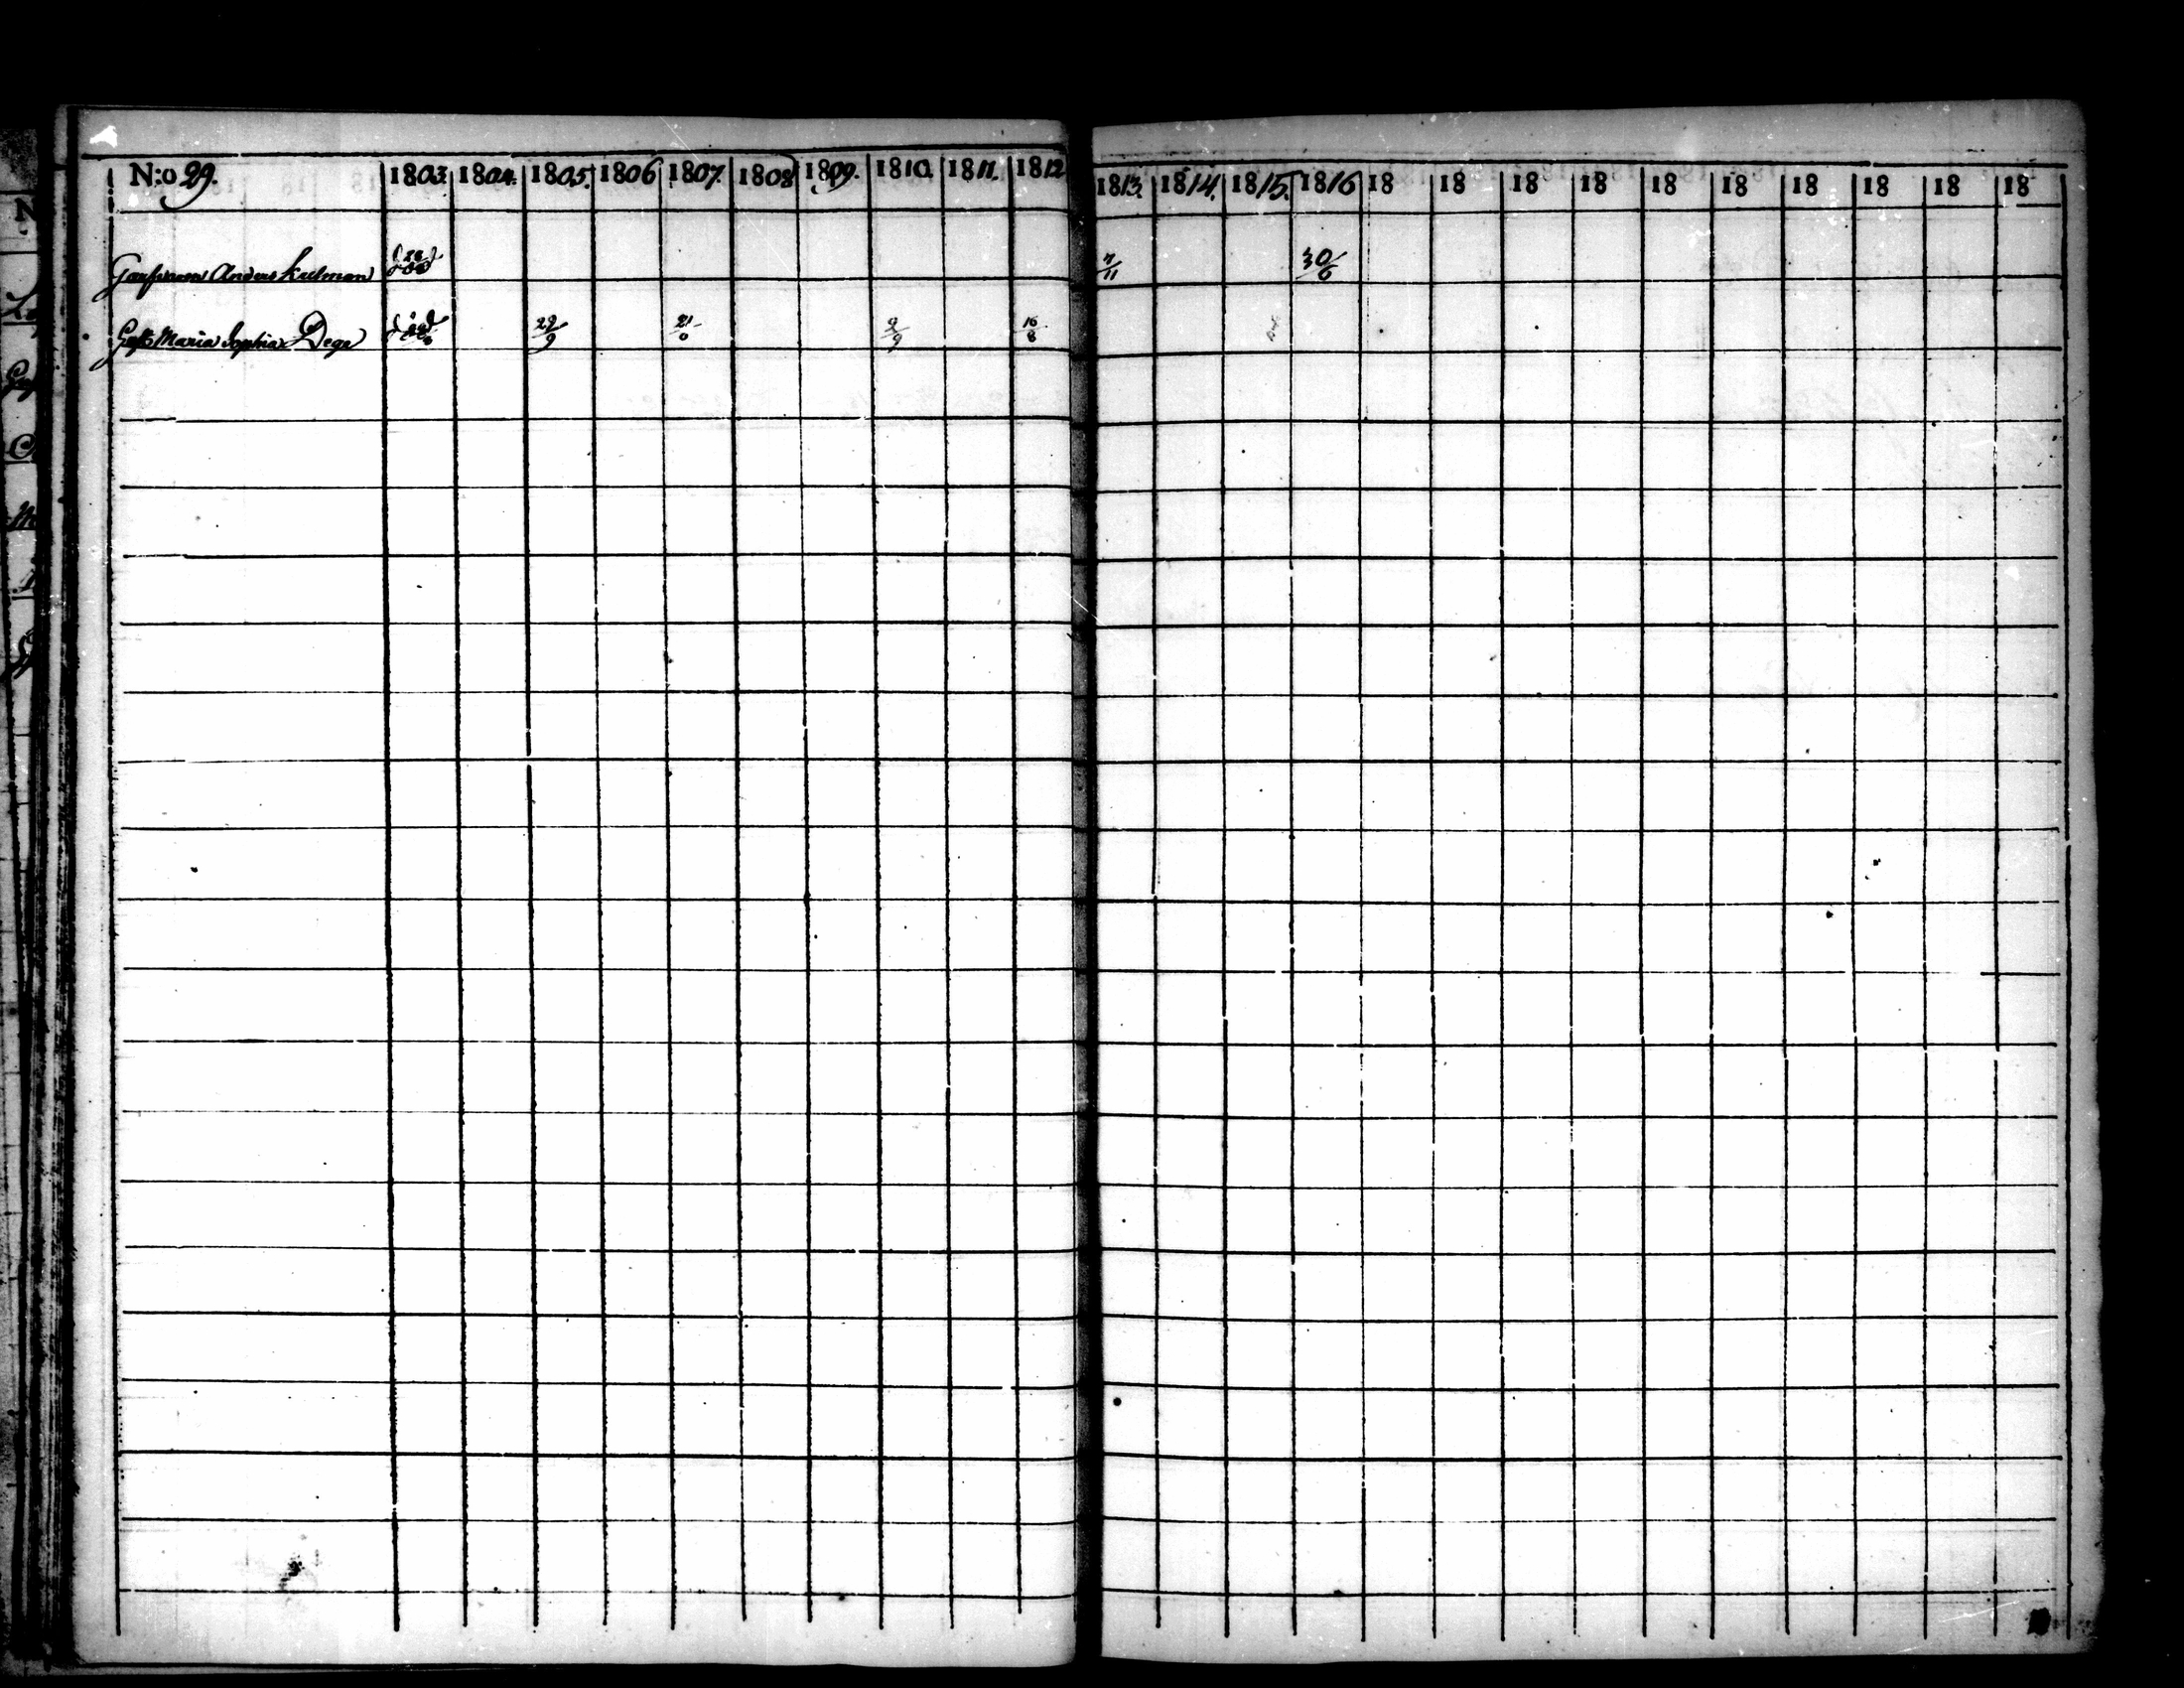 N:o 29. 1803. 1804. 1805. 1806 1807. 1808 1809. 1810. 1811. 1812 1813. 1814. 1815. 1816 18 18 18 18 18 18 18 18 18 18
Anders Kulman 7/11 30/6
Maria Sophia Dege 22/9 21/0 2/9 16/8